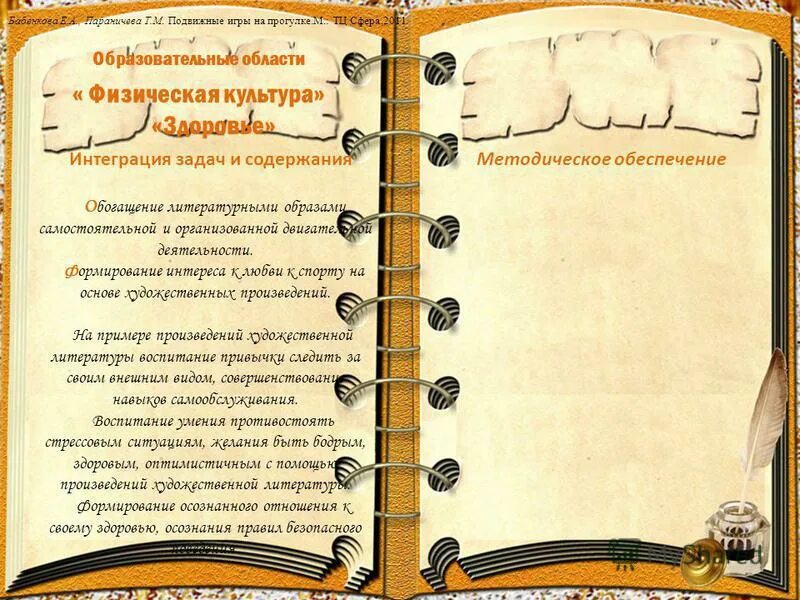 Бабенкова Е.А., Параничева Т.М. Подвижные игры на прогулке.М.: ТЦ Сфера,2011.
Образовательные области
« Физическая культура»
«Здоровье»
Интеграция задач и содержания
Обогащение литературными образами
самостоятельной и организованной двигательной
деятельности.
Формирование интереса к любви к спорту на
основе художественных произведений.
На примере произведений художественной
литературы воспитание привычки следить за
своим внешним видом, совершенствование
навыков самообслуживания.
Воспитание умения противостоять
стрессовым ситуациям, желания быть бодрым,
здоровым, оптимистичным с помощью
произведений художественной литературы.
Формирование осознанного отношения к
своему здоровью, осознания правил безопасного
поведения
Методическое обеспечение
MyShared